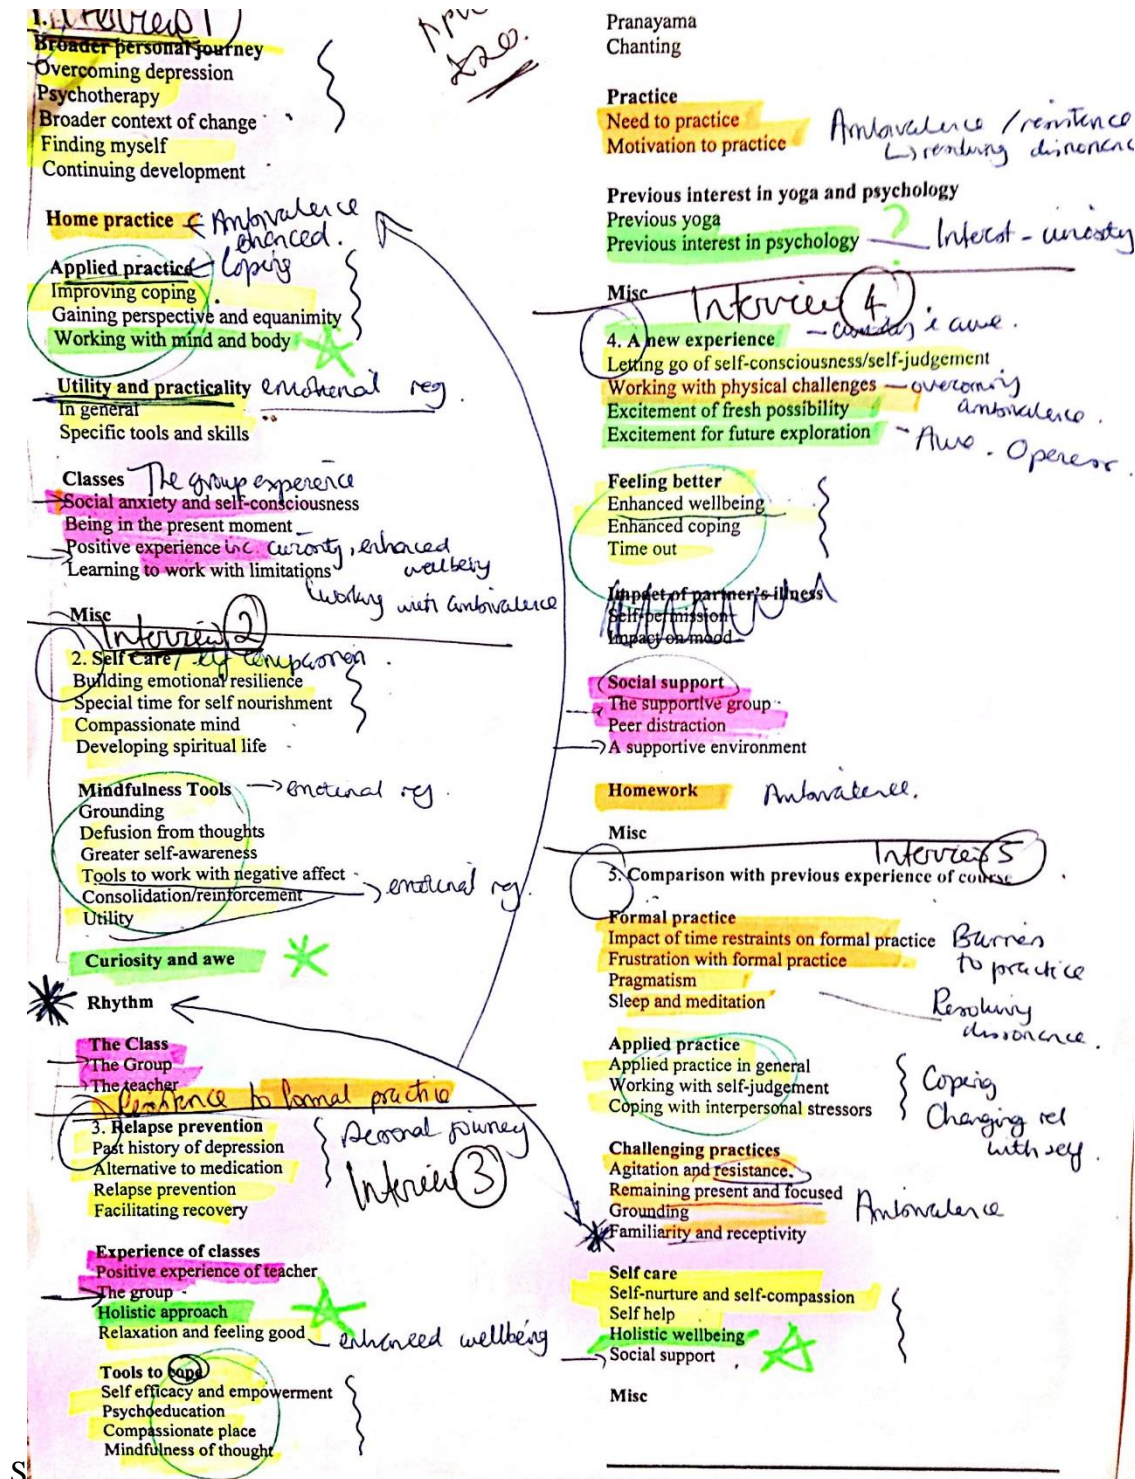 1. Interview 1
Broader personal journey
Overcoming depression
Psychotherapy
Broader context of change
Finding myself
Continuing development
Home practice Ambivalence
enhanced.
Applied practice Coping
Improving coping
Gaining perspective and equanimity
Working with mind and body
Utility and practicality emotional reg.
In general
Specific tools and skills
Classes The group experience
Social anxiety and self-consciousness
Being in the present moment
Positive experience inc. curiosity, enhanced
wellbeing
Learning to work with limitations
working with ambivalence
Misc
Interview 2
2. Self Care / self compassion.
Building emotional resilience
Special time for self nourishment
Compassionate mind
Developing spiritual life
Mindfulness Tools emotional reg.
Grounding
Defusion from thoughts
Greater self-awareness
Tools to work with negative affect
Consolidation/reinforcement emotional reg.
Utility
Curiosity and awe
Rhythm
The Class
The Group
The teacher
Resistence to formal practice
3. Relapse prevention
Past history of depression personal journey
Alternative to medication
Relapse prevention Interview 3
Facilitating recovery
Experience of classes
Positive experience of teacher
The group
Holistic approach
Relaxation and feeling good enhanced wellbeing
Tools to cope
Self efficacy and empowerment
Psychoeducation
Compassionate place
Mindfulness of thought
S
Pranayama
Chanting
Practice
Need to practice Ambivalence / resistence
Motivation to practice resolving
Previous interest in yoga and psychology
Previous yoga ?
Previous interest in psychology Interest - curiosity
Misc
Interview 4
4. A new experience - curiosity & awe.
Letting go of self-consciousness/self-judgement
Working with physical challenges - overcoming
ambivalence.
Excitement of fresh possibility
Excitement for future exploration - Awe.
Feeling better
Enhanced wellbeing
Enhanced coping
Time out
Impact of partner's illness
Self-permission
Impact on mood
Social support
The supportive group
Peer distraction
A supportive environment
Homework Ambivalence.
Misc
Interview 5
5. Comparison with previous experience of course
Formal practice
Impact of time restraints on formal practice Barriers
Frustration with formal practice to practice
Pragmatism
Sleep and meditation Resolving
dissonance.
Applied practice
Applied practice in general
Working with self-judgement Coping
Coping with interpersonal stressors Changing rel
with self.
Challenging practices
Agitation and resistance.
Remaining present and focused
Grounding Ambivalence
Familiarity and receptivity
Self care
Self-nurture and self-compassion
Self help
Holistic wellbeing
Social support
Misc